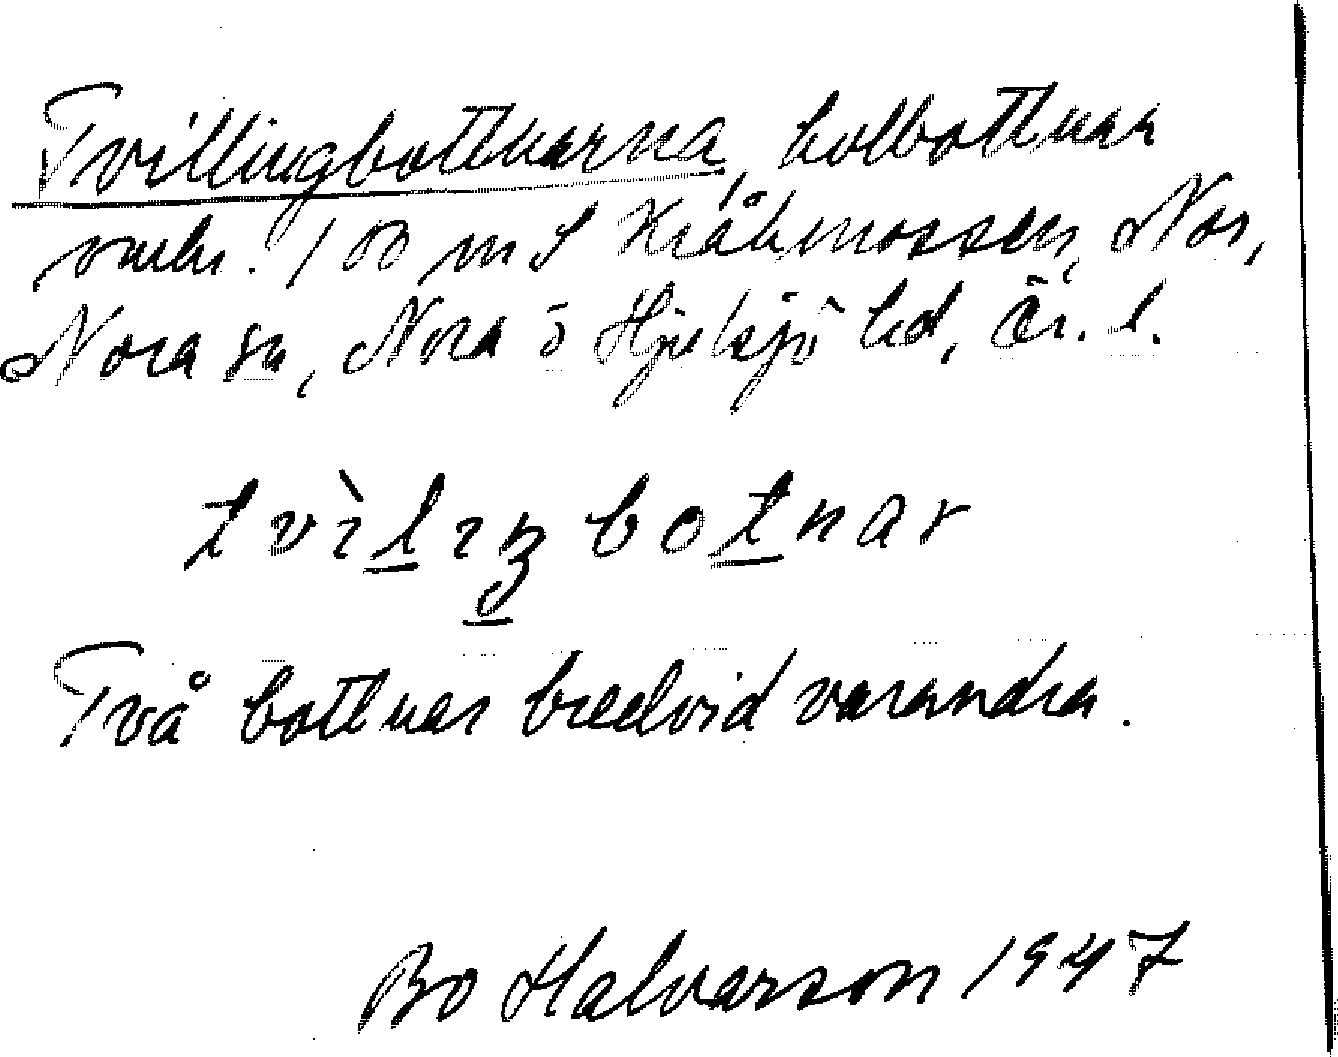 Tvillingbottnarna, kolbottnar
omkr. 100 m S Kråkmossen, Nor,
Nora sn, Nora o Hjulsjö bd, Ör. l.
tvìlıŋbotnar
Två bottnar bredvid varandra.
Bo Halvarson 1947